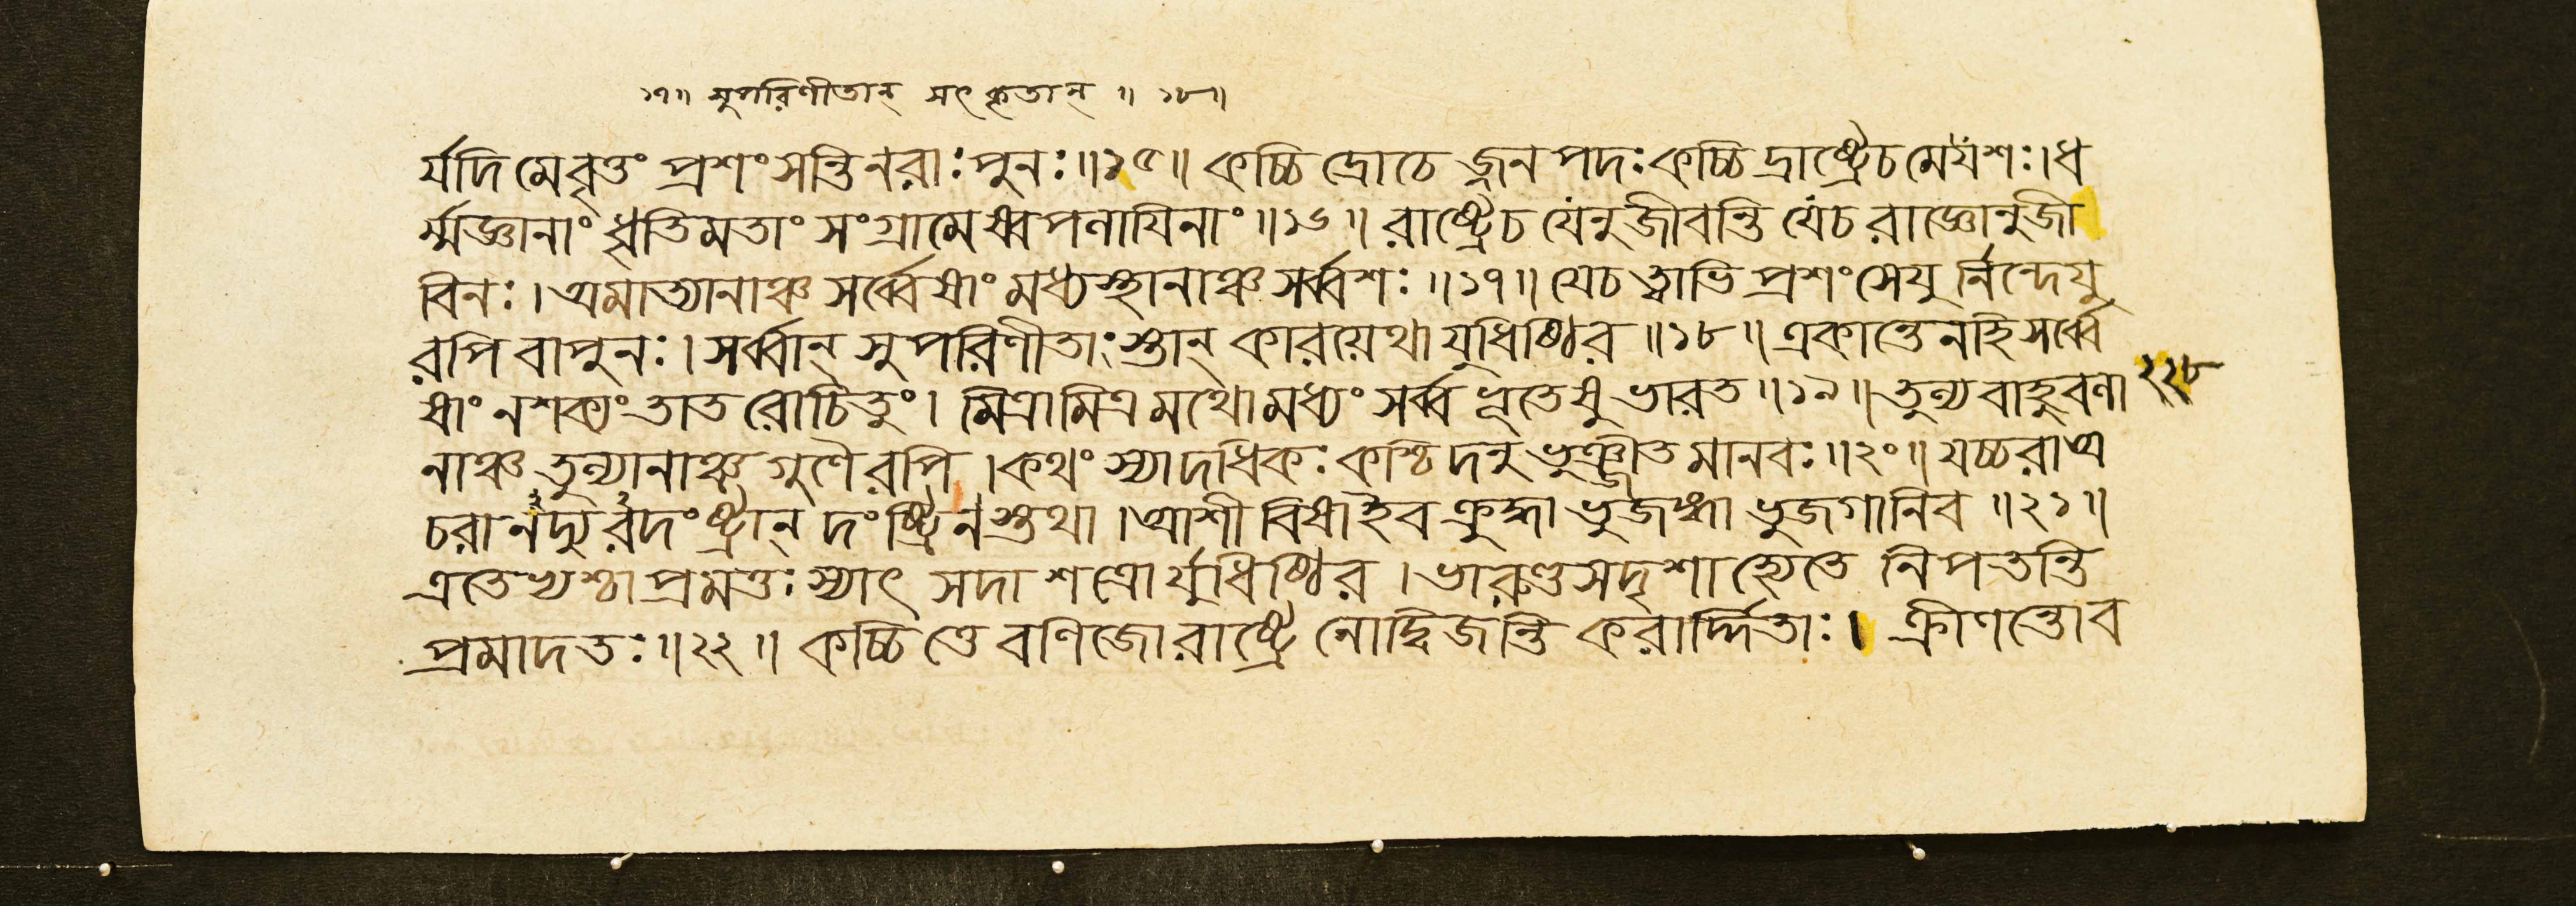 ১৭॥ সুপরিণীতান্ সৎকৃতান্ ॥ ১৮॥
র্যদি মে বৃত্তং প্রশংসন্তি নরাঃ পুনঃ॥১৫॥ কচ্চিদ্রোচে জ্জনপদঃ কচ্চিদ্রাষ্ট্রে চ মে যশঃ। ধ
র্ম্মজ্ঞানাং ধৃতিমতাং সংগ্রামেষ্বপলায়িনাং॥১৬॥ রাষ্ট্রে চ যেনুজীবন্তি যে চ রাজ্ঞোনুজী
বিনঃ। অমাত্যানাঞ্চ সর্ব্বেষাং মধ্যস্থানাঞ্চ সর্ব্বশঃ॥১৭॥ যে চ ত্বাভিপ্রশংসেয়ু র্নিন্দেয়ু
রপি বা পুনঃ। সর্ব্বান্ সুপরিণীতাংস্তান্ কারয়েথা যুধিষ্ঠির॥১৮॥ একান্তেন হি সর্ব্বে
ষাং ন শক্যং তাত রোচিতুং। মিত্রামিত্রমথো মধ্যং সর্ব্বভূতেষু ভারত॥১৯॥ তুল্যবাহুবলা
নাঞ্চ তুল্যানাঞ্চ গুণৈরপি। কথং স্যাদধিকঃ কশ্চিদনুভুঞ্জীত মানবঃ॥২০॥ যচ্চরা অ
চরানদ্যুরদংষ্ট্রান্ দংষ্ট্রিনস্তথা। আশীবিষা ইব ক্রুদ্ধা ভুজঙ্গা ভুজগানিব॥২১॥
এতেভ্যশ্চাপ্রমত্তঃ স্যাৎ সদা শত্রোর্যুধিষ্ঠির। ভারুণ্ডসদৃশা হ্যেতে নিপতন্তি
প্রমাদতঃ॥২২॥ কচ্চিত্তে বণিজো রাষ্ট্রে নোদ্বিজন্তি করার্দ্দিতাঃ। ক্রীণন্তো ব
২২৮